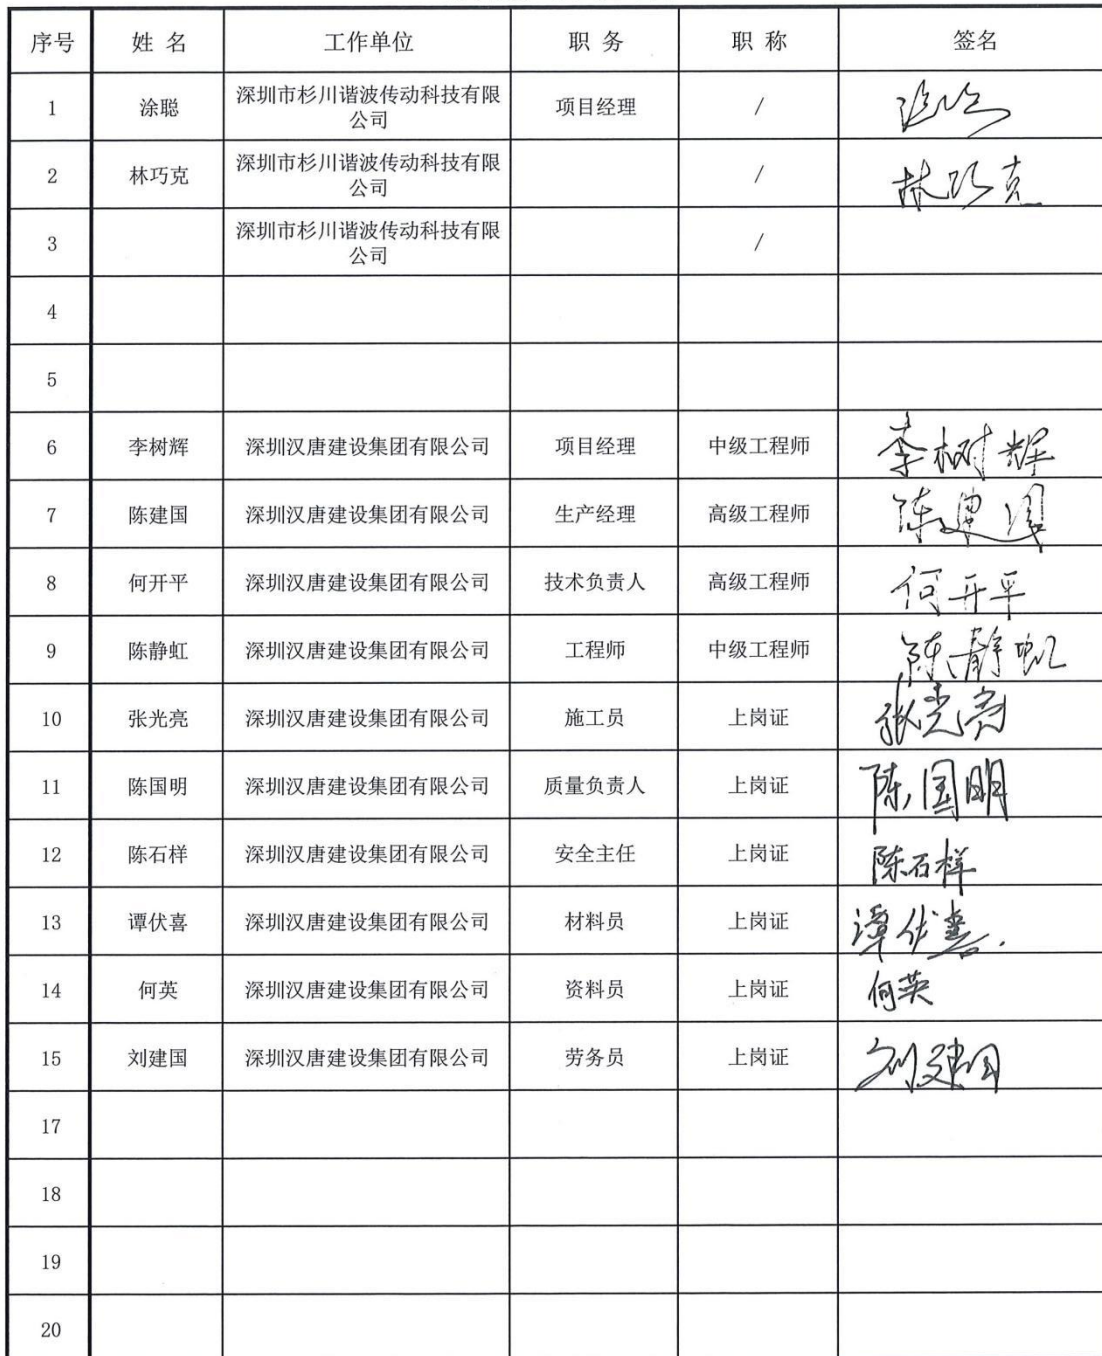 序号 姓 名 工作单位 职 务 职 称 签名
1 涂聪 深圳市杉川谐波传动科技有限公司 项目经理 /
2 林巧克 深圳市杉川谐波传动科技有限公司 / 林巧克
3 深圳市杉川谐波传动科技有限公司 /
4
5
6 李树辉 深圳汉唐建设集团有限公司 项目经理 中级工程师 李树辉
7 陈建国 深圳汉唐建设集团有限公司 生产经理 高级工程师 陈建国
8 何开平 深圳汉唐建设集团有限公司 技术负责人 高级工程师 何开平
9 陈静虹 深圳汉唐建设集团有限公司 工程师 中级工程师 陈静虹
10 张光亮 深圳汉唐建设集团有限公司 施工员 上岗证 张光亮
11 陈国明 深圳汉唐建设集团有限公司 质量负责人 上岗证 陈国明
12 陈石样 深圳汉唐建设集团有限公司 安全主任 上岗证 陈石样
13 谭伏喜 深圳汉唐建设集团有限公司 材料员 上岗证 谭伏喜
14 何英 深圳汉唐建设集团有限公司 资料员 上岗证 何英
15 刘建国 深圳汉唐建设集团有限公司 劳务员 上岗证 刘建国
17
18
19
20